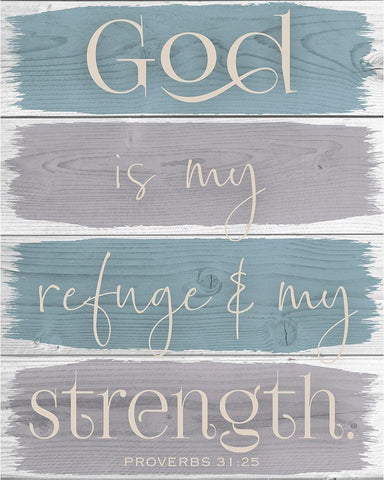 God
is my
refuge & my
strength.
PROVERBS 31:25